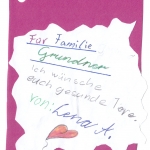 Für Familie
Grundner
Ich wünsche
euch gesunde Tage.
von: Lena A.